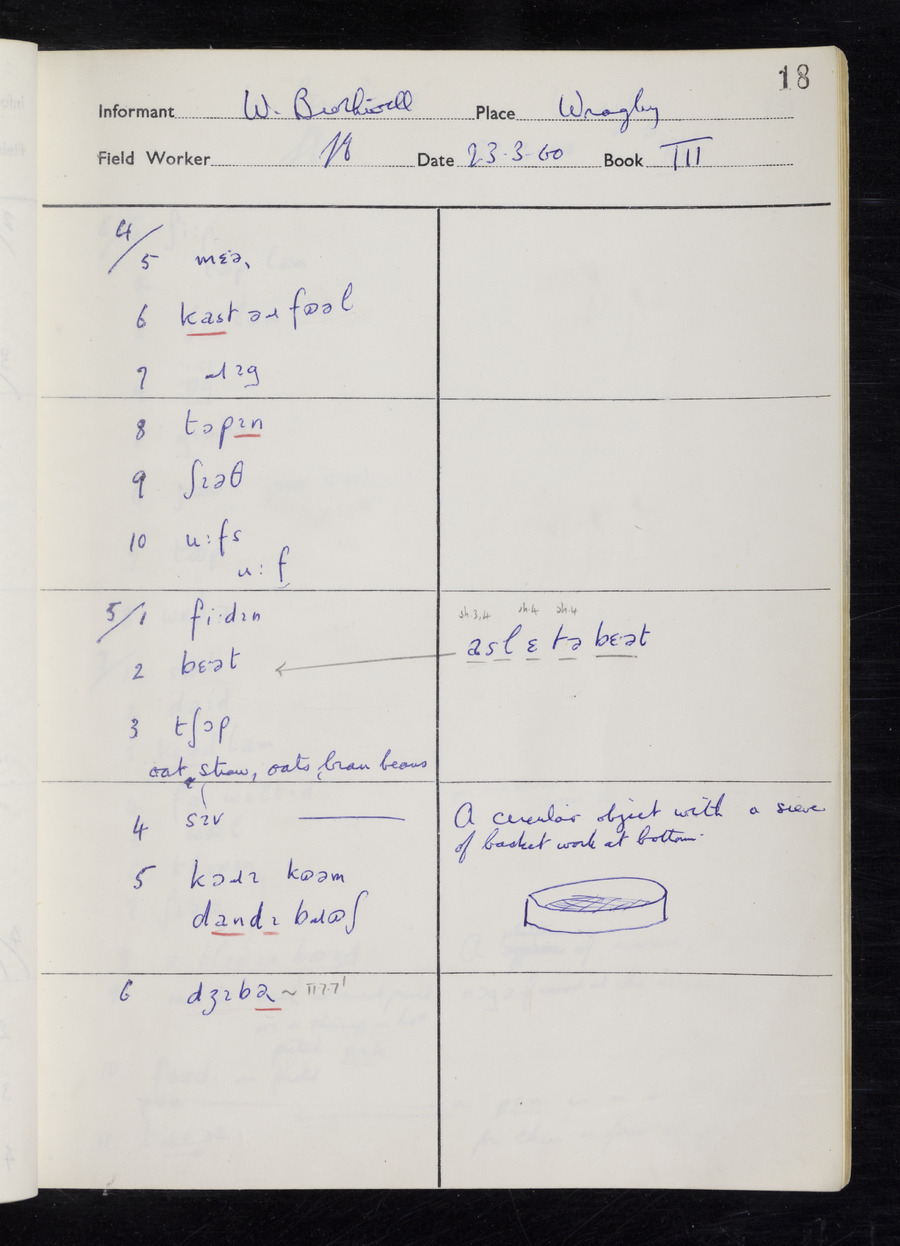 18
Informant W. Place Wragby
Field Worker Date 23-3-60 Book III
4/5 mɛə,
6 kastəɹ fɷəl
7 ɹɪg
8 tɔpɪn
9 ʃɪəθ
10 u:fs
u:f
5/1 fi:dɪn
sh.3,4 sh.4 sh.4
2 bɛət asl ɛ tə bɛət
3 tʃɔp
oat straw, oats, bran beans
4 sɪv A circular object with a sieve
of basket work at bottom.
5 kɔɹɪ kɷəm
dandɪ bɹɷʃ
6 dʒɪbə ~ II 7.7